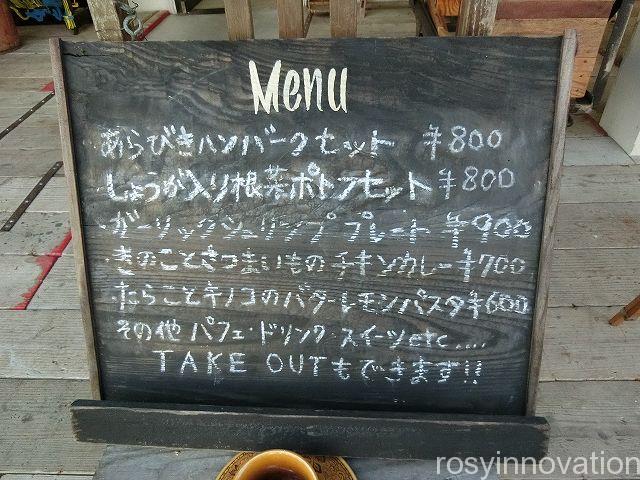 Menu
・あらびきハンバーグセット ¥800
・しょうが入り根菜ポトフセット ¥800
・ガーリックシュリンププレート ¥900
・きのことさつまいものチキンカレー ¥700
・たらことキノコのバターレモンパスタ ¥600
その他 パフェ・ドリンク・スイーツetc....
TAKE OUTもできます!!
rosyinnovation